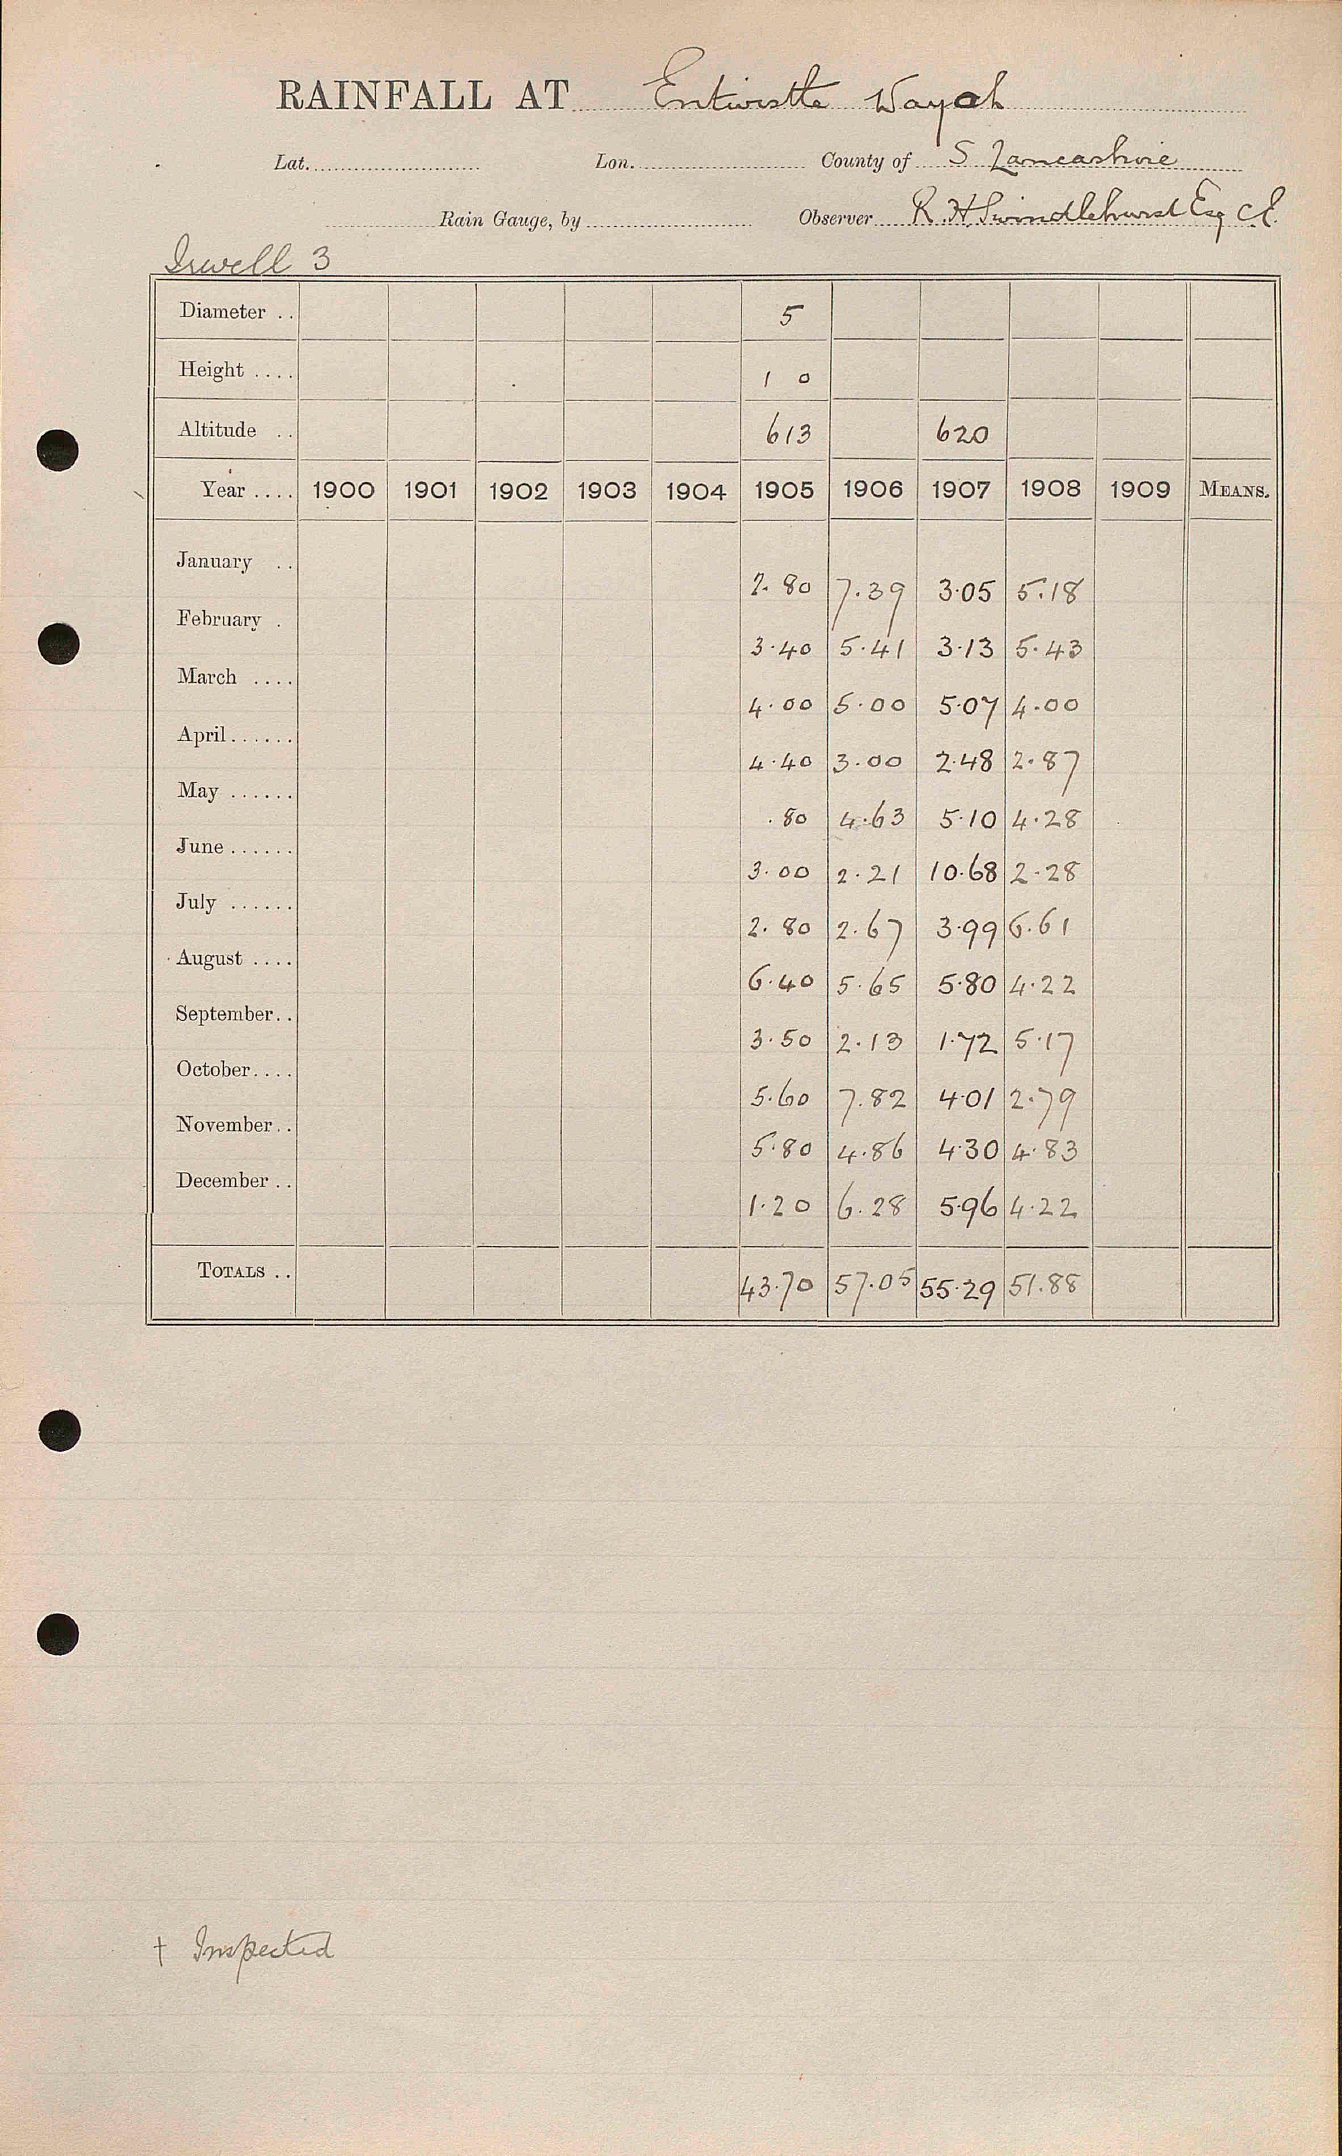 RAINFALL AT Entwistle Wayoh
Lat. Lon. County of S Lancashire
Rain Gauge, by Observer R. H. Swindlehurst Esq C.E.
Irwell 3
Diameter .. 5
Height .... 1 0
Altitude .. 613 620
Year .... 1900 1901 1902 1903 1904 1905 1906 1907 1908 1909 MEANS.
January .. 2.80 7.39 3.05 5.18
February . 3.40 5.41 3.13 5.43
March .... 4.00 5.00 5.07 4.00
April...... 4.40 3.00 2.48 2.87
May ...... .80 4.63 5.10 4.28
June...... 3.00 2.21 10.68 2.28
July ...... 2.80 2.67 3.99 6.61
August .... 6.40 5.65 5.80 4.22
September.. 3.50 2.13 1.72 5.17
October.... 5.60 7.82 4.01 2.79
November.. 5.80 4.86 4.30 4.83
December .. 1.20 6.28 5.96 4.22
TOTALS .. 43.70 57.05 55.29 51.88
† Inspected